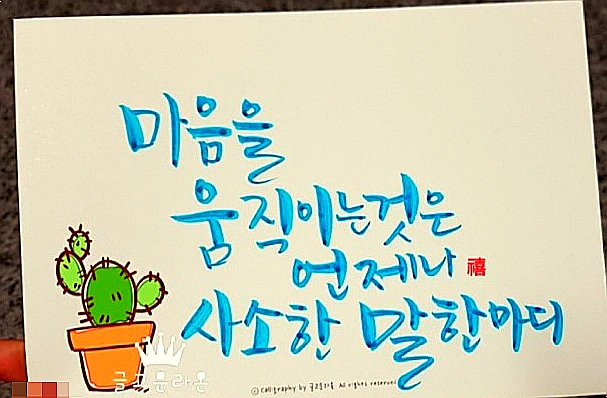 마음을
움직이는것은
언제나
禧
사소한 말한마디
글고운라온
ⓒ Calligraphy by 글고운라온 All rights reserved